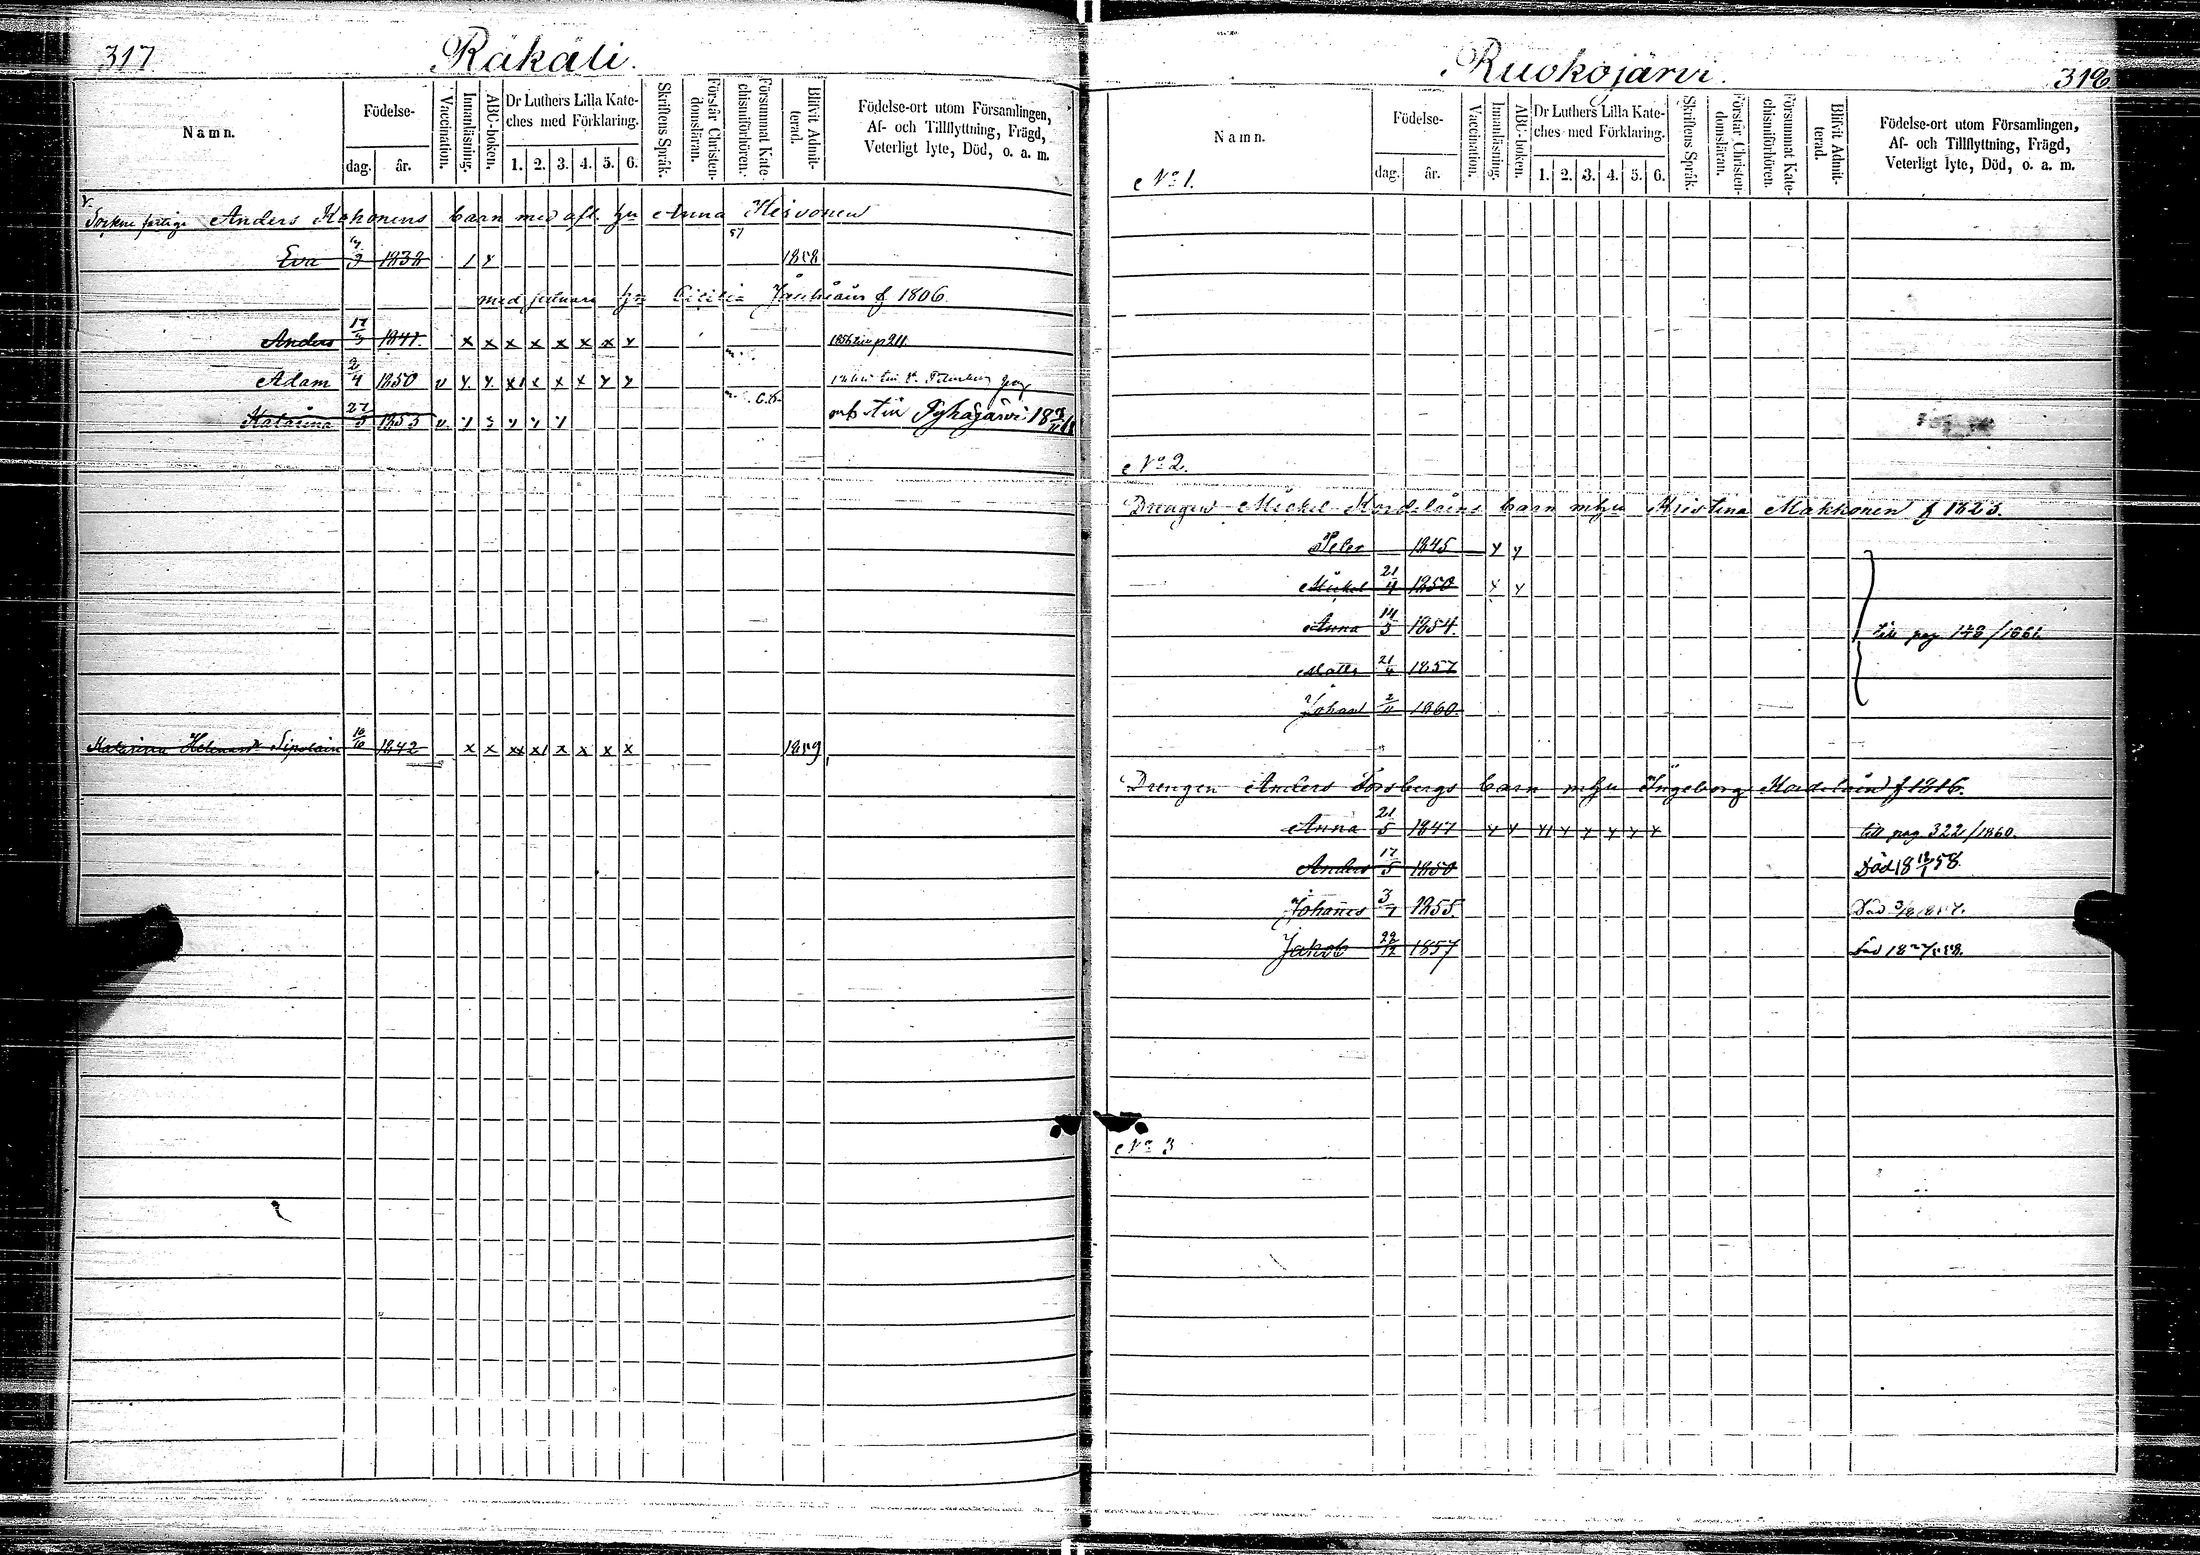 317
Räkäli.
Namn.
Födelse-
dag.
år.
Vaccination.
Innanläsning.
ABC-boken.
Dr Luthers Lilla Kate-
ches med Förklaring.
1. 2. 3. 4. 5. 6.
Skriftens Språk.
Förstår Christen-
domsläran.
Försummat Kate-
chismiförhören.
Blifvit Admit-
terad.
Födelse-ort utom Församlingen,
Af- och Tillflyttning, Frägd,
Veterligt lyte, Död, o. a. m.
Anders Kokonens barn med afl. hu Anna Hirvonen
57
Eva 1838 1858
med hu f 1806.
Anders 17 1841. x x x x x x x
Adam 2/4 1850 v
Katarina 27/3 1853 v Pyhäjärvi
Katarina Sipolain 10/10 1842 x x xx x1 x x x x 1859
Ruokojärvi.
318
Namn.
Födelse-
dag.
år.
Vaccination.
Innanläsning.
ABC-boken.
Dr Luthers Lilla Kate-
ches med Förklaring.
1. 2. 3. 4. 5. 6.
Skriftens Språk.
Förstår Christen-
domsläran.
Försummat Kate-
chismiförhören.
Blifvit Admit-
terad.
Födelse-ort utom Församlingen,
Af- och Tillflyttning, Frägd,
Veterligt lyte, Död, o. a. m.
No 1.
No 2.
Drengen Mickel barn mhu Kristina Makkonen f 1823.
Peter 1845
Mickel 21/4 1850
Anna 14/3 1854.
till pag 148/1861.
Matts 21/4 1857
Johan 2/11 1860.
Drengen Anders Forsbergs barn mhu Ingeborg f 1816.
Anna 21/5 1847 till pag 322/1860.
Anders 17/5 1850 Död 18 12/1 58.
Johanes 3/7 1855. Död
Jakob 22/12 1857 Död
No 3